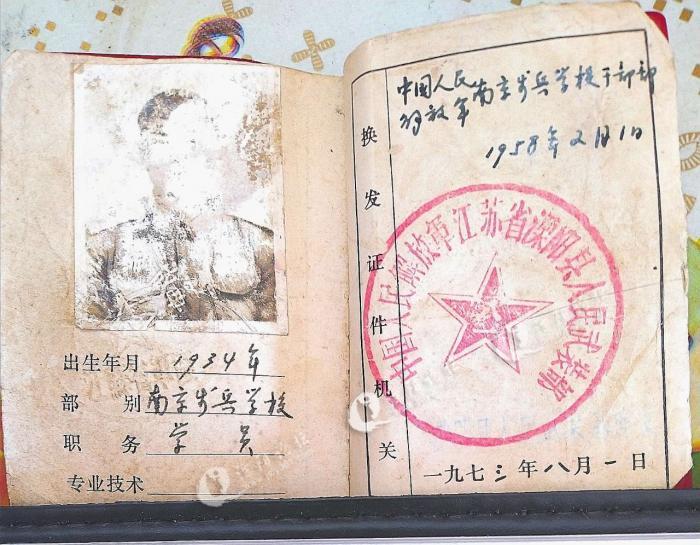 出生年月 1934年
部别 南京步兵学校
职务 学员
专业技术
换发证件机关
中国人民
解放军 南京步兵学校干部部
1958年2月1日
中国人民解放军江苏省溧阳县人民武装部
一九七三年八月一日